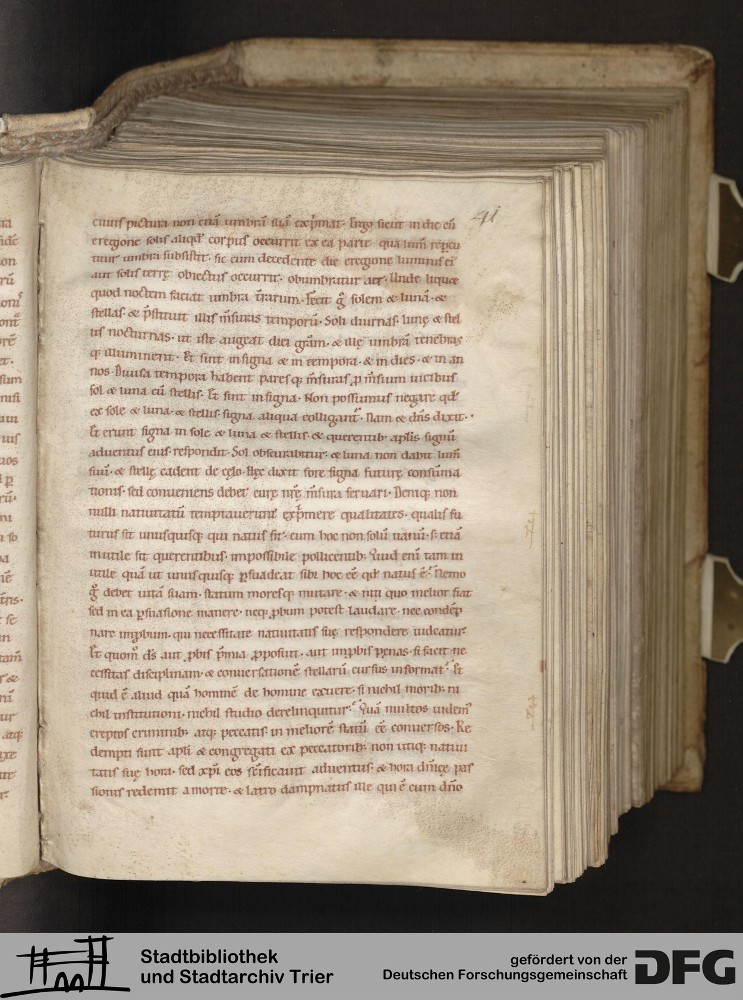 41
cuius pictura non etiā umbrā suā exp̄mat. Ergo sicut in die cū
eregione solis aliqđ corpus occurrit ex ea parte qua lum̄ repcu
titur umbra subsistit. sic cum decedente die eregione luminis ei
aut solis terrę obiectus occurrit. obumbratur aer. Unde liquet
quod noctem faciat umbra t̄rarum. Fecit g̊ solem & lunā. &
stellas & p̄stituit illis m̄suras temporū. Soli diurnas. lunę & stel
lis nocturnas. ut iste augeat diei grām. & illę umbrā tenebras
q; illuminent. Et sint in signa & in tempora. & in dies. & in an
nos. Diuisa tempora habent pares q; m̄suras p m̄sium uicibus
sol & luna cū stellis. Et sint in signa. Non possumus negare qđ
ex sole & luna. & stellis signa aliqua colligant᷒. Nam & dn̄s dixit.
Et erunt signa in sole & luna & stellis. & querentib; apłis signū
aduentus eius respondit. Sol obscurabitur. & luna non dabit lum̄
suū. & stellę cadent de cęlo. Hęc dixit fore signa futurę consūma
tionis. sed conueniens debet curę nr̄ę m̄sura seruari. Deniq; non
nulli natiuitatū temptauerunt exp̄mere qualitates. qualis fu
turus sit unusquisq; qui natus sit. cum hoc non solū uanū. s; etiā
inutile sit querentibus. impossibile pollicentib; Quid enī tam in
utile quā ut unusquisq; psuadeat sibi hoc eē qđ natus ē. Nemo
g̊ debet uitā suam. statum moresq; mutare. & niti quo melior fiat
sed in ea psuasione manere. neq; pbum potest laudare. nec condēp
nare improbum. qui necessitate natiuitatis suę respondere uideatur.
Et quom̊ dς aut pbis p̄mia pposuit. aut improbis pęnas. si facit ne
cessitas disciplinam. & conuersationē stellarū cursus informat. Et
quid ē aliud quā hominē de homine exuere. si nichil morib; ni
chil institutioni. nichil studio derelinquitur. Quā multos uidem᷒
ereptos criminib; atq; peccatis in meliorē statū eē conuersos. Re
dempti sunt apłi & congregati ex peccatorib; non utiq; natiui
tatis suę hora. sed xp̄i eos sc̄ificauit aduentus. & hora dn̄icę pas
sionis redemit a morte. & latro dampnatus ille qui ē cum dn̄o
Stadtbibliothek
und Stadtarchiv Trier
gefördert von der
Deutschen Forschungsgemeinschaft
DFG